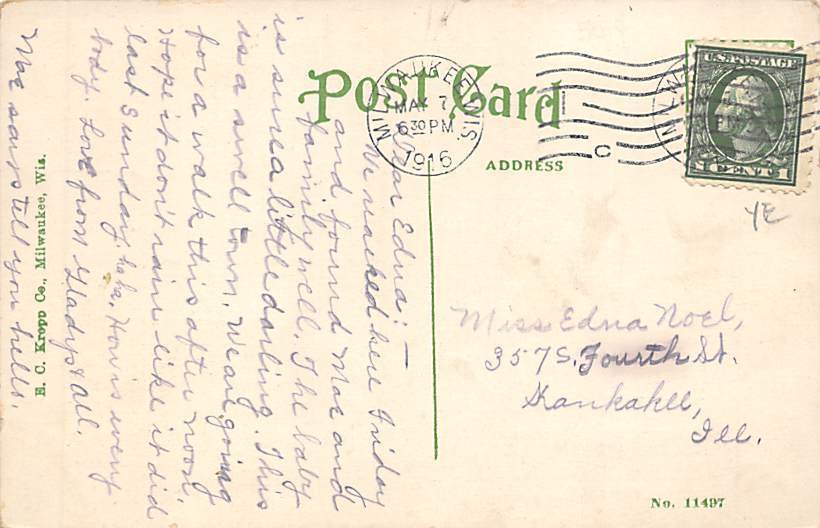 Post Card
MILWAUKEE, WIS.
MAY 7
6 30 PM
1916
U.S. POSTAGE
1 CENT 1
C
ADDRESS
YE
Dear Edna:—
We reached here Friday
and found Mae and
family well. The baby
is sure a little darling. This
is a swell town. We are going
for a walk this after noon.
Hope it don't rain like it did
last Sunday, haha. How is every
body. Love from Gladys & all.
Mae says tell you hello.
E. C. Kropp Co., Milwaukee, Wis.
Miss Edna Noel,
357 S. Fourth St.
Kankakee,
Ill.
No. 11497